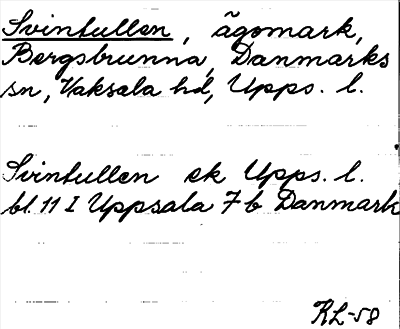 Svintullen, ägomark,
Bergsbrunna, Danmarks
sn, Vaksala hd, Upps. l.
Svintullen ek Upps. l.
bl. 11 I Uppsala 7b Danmark
KL-58